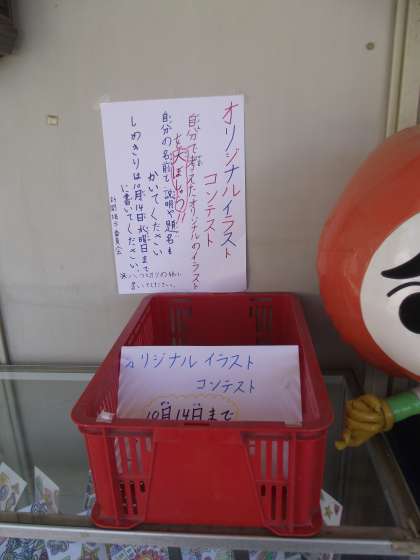 オリジナルイラスト
コンテスト
自分で考えたオリジナルのイラスト
を大ぼしゅう!!
自分の名前と説明や題名も
かいてください
しめきりは10月14日水曜日まで
に書いてください。
新聞掲示委員会
オリジナルイラスト
コンテスト
10月14日まで